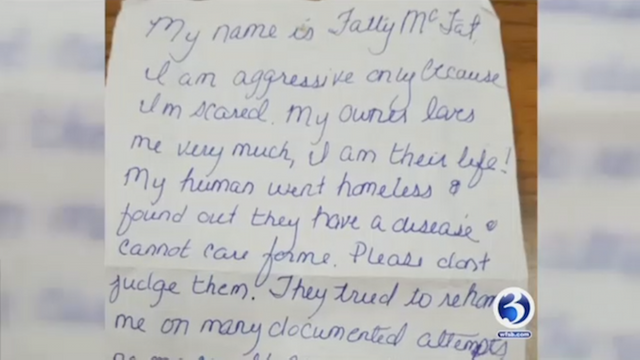 My name is Fatty McFat.
I am aggressive only because
I'm scared. My owner loves
me very much, I am their life!
My human went homeless &
found out they have a disease &
cannot care for me. Please dont
judge them. They tried to rehome
me on many documented attempts
3
wfsb.com